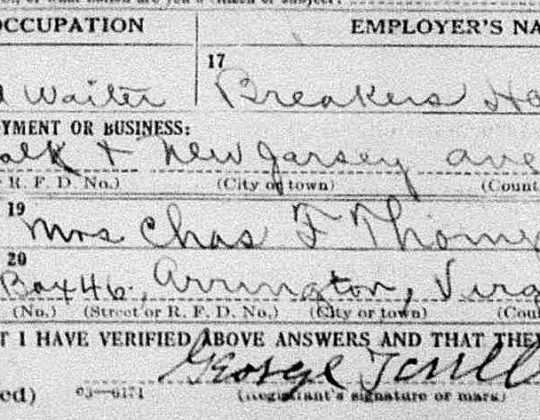 OCCUPATION EMPLOYER'S NA
17
Waiter Breakers Ho
YMENT OR BUSINESS:
alk + New Jarsey ave
R. F. D. No.) (City or town) (Count
19
Mrs Chas F Thom
20
Box 46, Arrington, Virg
(No.) (Street or R. F. D. No.) (City or town) (Cou
T I HAVE VERIFIED ABOVE ANSWERS AND THAT THE
George
ed) 03—6171 (Registrant's signature or mark)